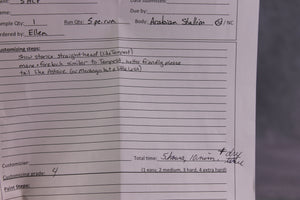 Due by:
Sample Qty: 1 Run Qty: 5 per run Body: Arabian Stallion / NC
Ordered by: Ellen
Customizing steps:
Show stance straight head (like Tempest)
mane + forelock similar to Tempest, water friendly please
tail like Astaire (or Morgan but a little less)
Customizer: Total time: 5 hours, 10 min. + dry time
Customizing grade: 4 (1 easy, 2 medium, 3 hard, 4 extra hard)
Paint Steps: